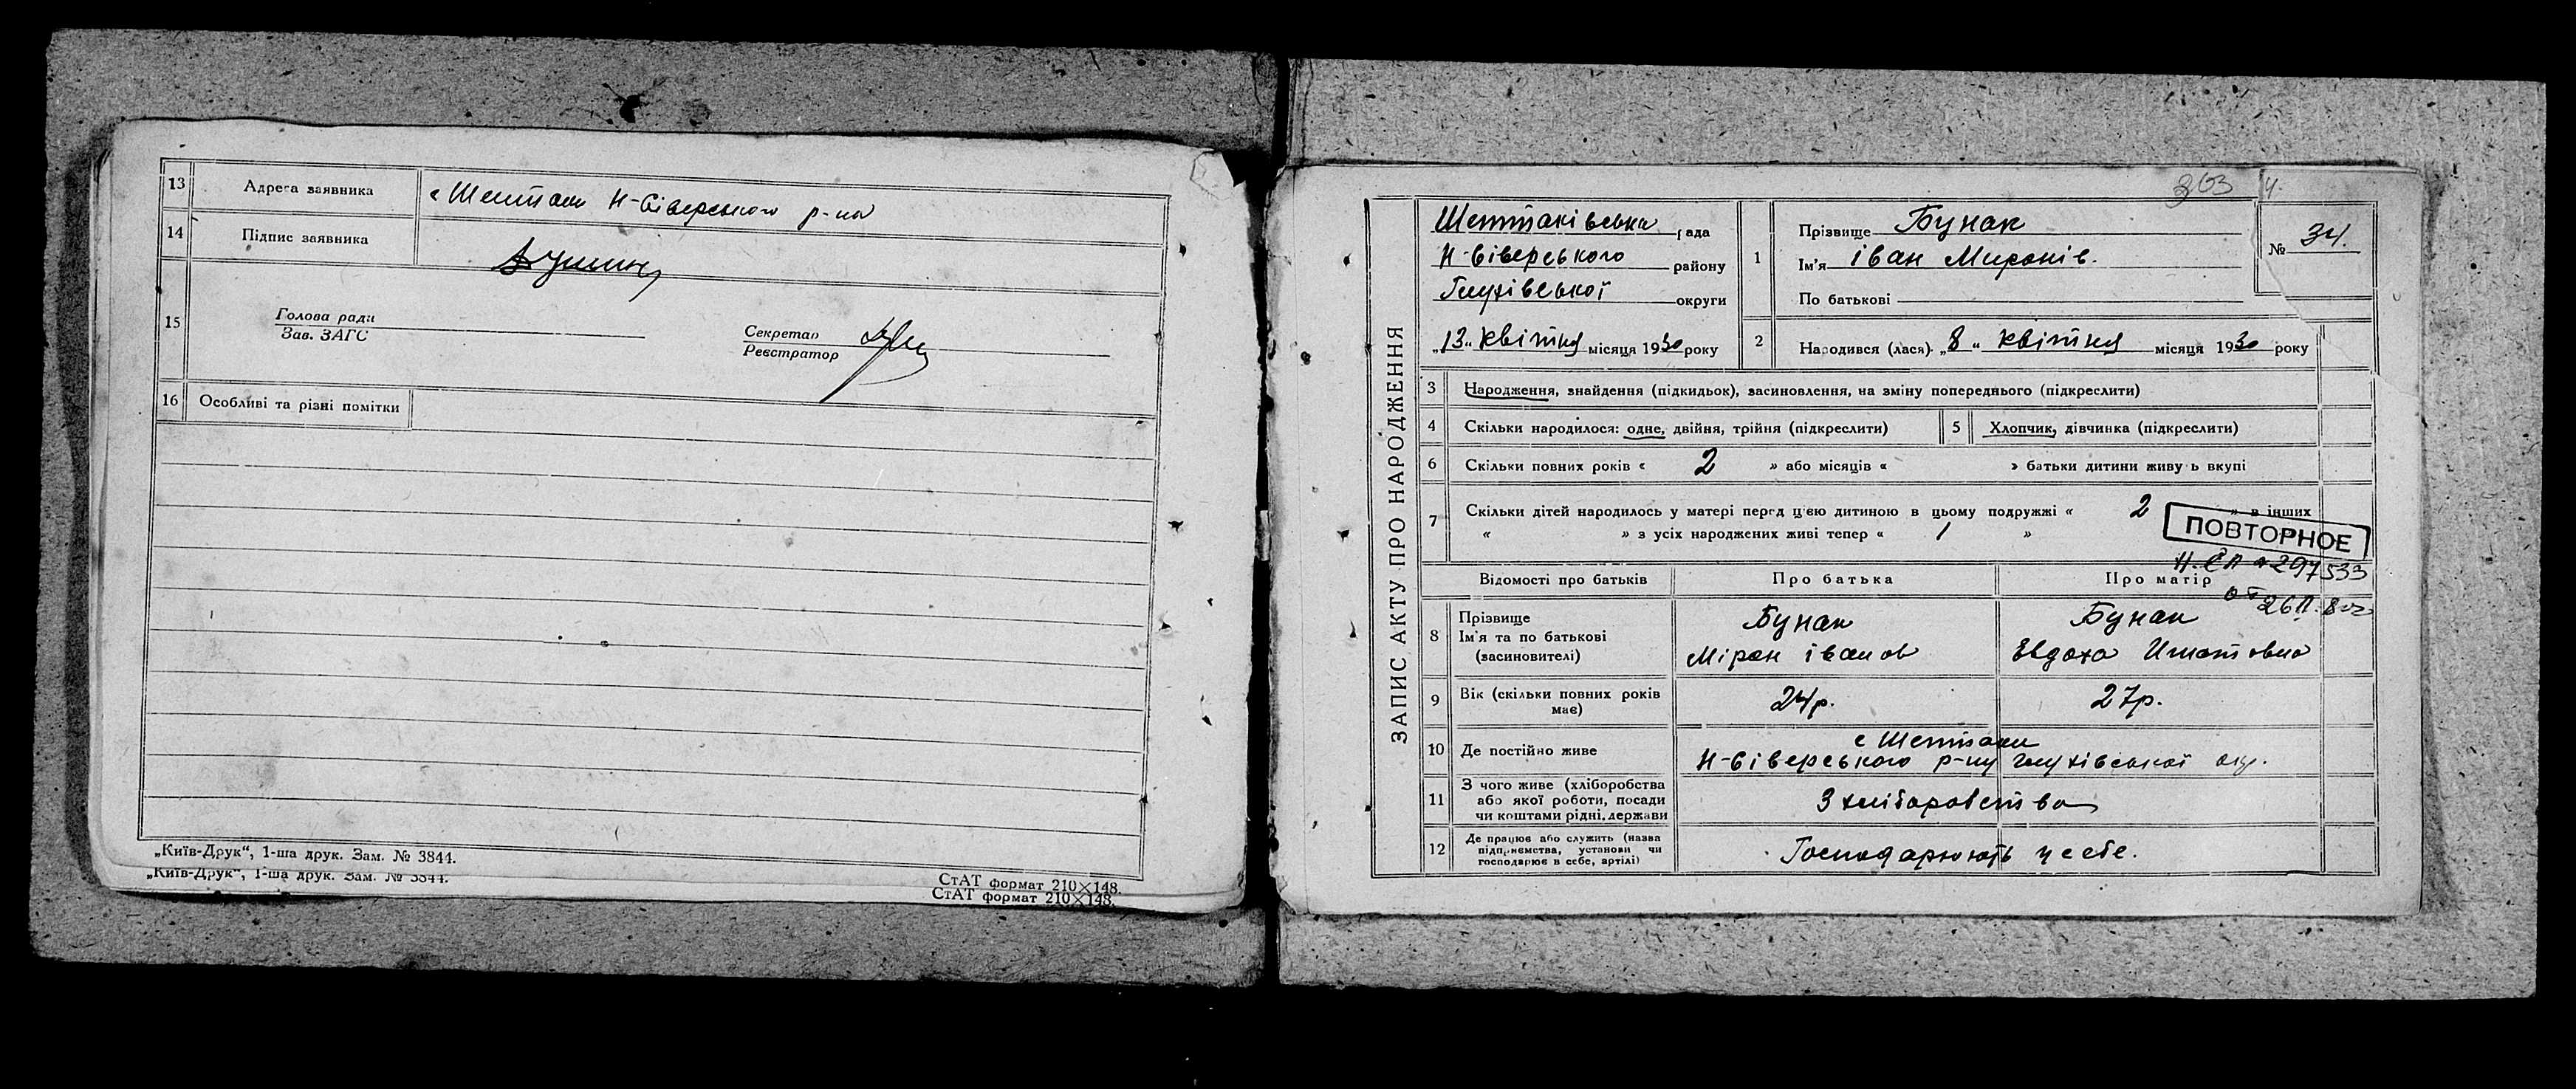 13 Адреса заявника с Шептаки Н-Сіверського р-на
14 Підпис заявника
15 Голова ради
Зав. ЗАГС
Секретар
Реєстратор
16 Особливі та різні помітки
„Київ-Друк“, 1-ша друк. Зам. № 3844.
„Київ-Друк“, 1-ша друк. Зам. № 3844.
СтАТ формат 210×148.
СтАТ формат 210×148.
303
ЗАПИС АКТУ ПРО НАРОДЖЕННЯ
Шептаківська рада
Н-Сіверського району
Глухівської округи
„13“ квітня місяця 1930 року
1 Прізвище Бунак
Ім'я Іван Миронів.
По батькові
№ 34.
2 Народився (лася) „8“ квітня місяця 1930 року
3 Народження, знайдення (підкидьок), засиновлення, на зміну попереднього (підкреслити)
4 Скільки народилося: одне, двійня, трійня (підкреслити) 5 Хлопчик, дівчинка (підкреслити)
6 Скільки повних років « 2 » або місяців « » батьки дитини живуть вкупі
7 Скільки дітей народилось у матері перед цією дитиною в цьому подружжі « 2 » в інших
« » з усіх народжених живі тепер « 1 »
ПОВТОРНОЕ
297533
от
Відомості про батьків Про батька Про матір
8 Прізвище
Ім'я та по батькові
(засиновителі)
Бунак
Мірон Іванов
Бунак
Евдоха Игнатовна
9 Вік (скільки повних років має) 24р. 27р.
10 Де постійно живе с Шептаки
Н-Сіверського р-ну Глухівської окр.
11 З чого живе (хліборобства
або якої роботи, посади
чи коштами рідні, держави
З хліборобства
12 Де працює або служить (назва
підприємства, установи чи
господарює в себе, артілі)
Господарюють у себе.